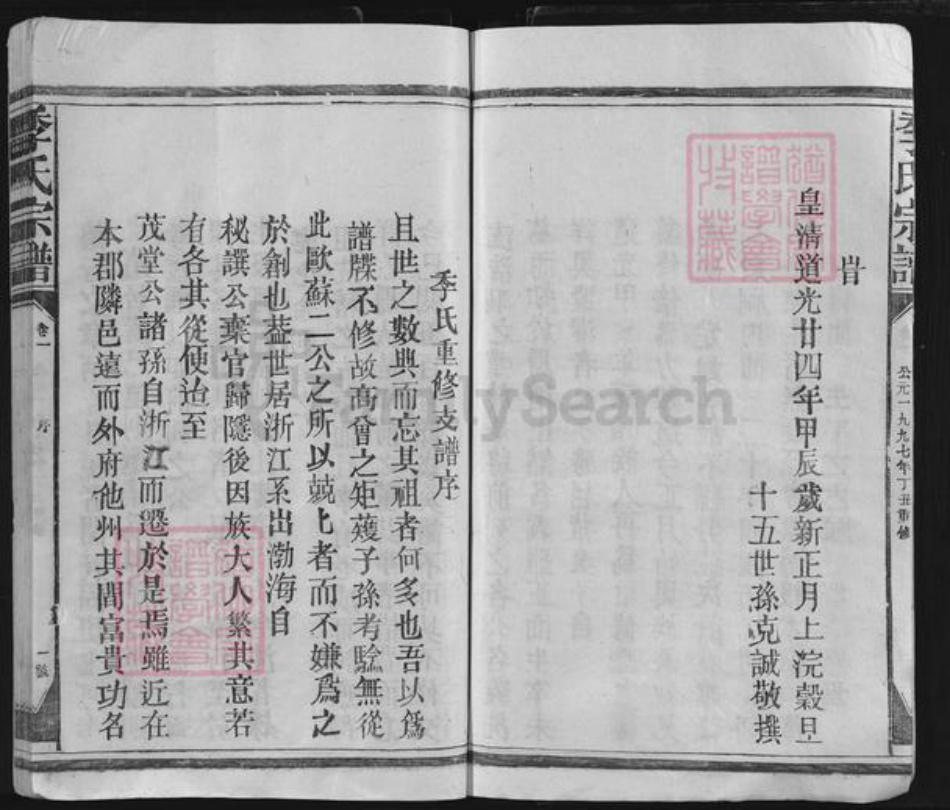 季氏宗譜
公元一九九七年丁丑重修
旹
皇清道光廿四年甲辰歲新正月上浣穀旦
十五世孫克誠敬撰
季氏重修支譜序
且世之數典而忘其祖者何多也吾以爲
譜牒不修故高曾之矩蒦子孫考騐無從
此歐蘇二公之所以兢匕者而不嫌爲之
於創也葢世居浙江系出渤海自
秘譔公棄官歸隱後因族大人繁其意若
有各其從使迨至
茂堂公諸孫自浙江而遷於是焉雖近在
本郡隣邑遠而外府他州其間富貴功名
季氏宗譜
卷一
序
一號
譜學會
收藏
FamilySearch